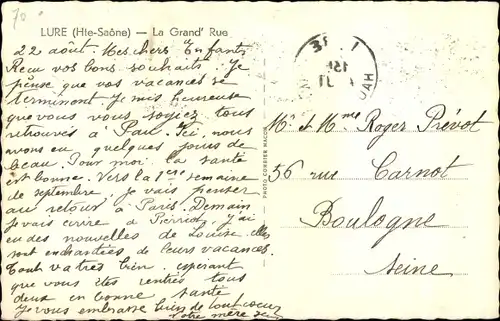 LURE (Hte-Saône) — La Grand' Rue
22 août. Mes chers Enfants
Reçu vos bons souhaits. Je
pense que vos vacances se
terminent je suis heureuse
que vous vous soyiez tous
retrouvés à Pau. Ici, nous
avons eu quelques jours de
beau. Pour moi la santé
est bonne. Vers la 1ère semaine
de septembre je vais penser
au retour à Paris. Demain
je vais écrire à Pierrot, j'ai
eu des nouvelles de Louise. elles
sont enchantées de leurs vacances.
Tout va très bien. espérant
que vous êtes rentrés tous
deux en bonne santé
Je vous embrasse bien de tout cœur
votre mère
PHOTO COMBIER MACON
Mr et Mme Roger Prévot
56 rue Carnot
Boulogne
Seine